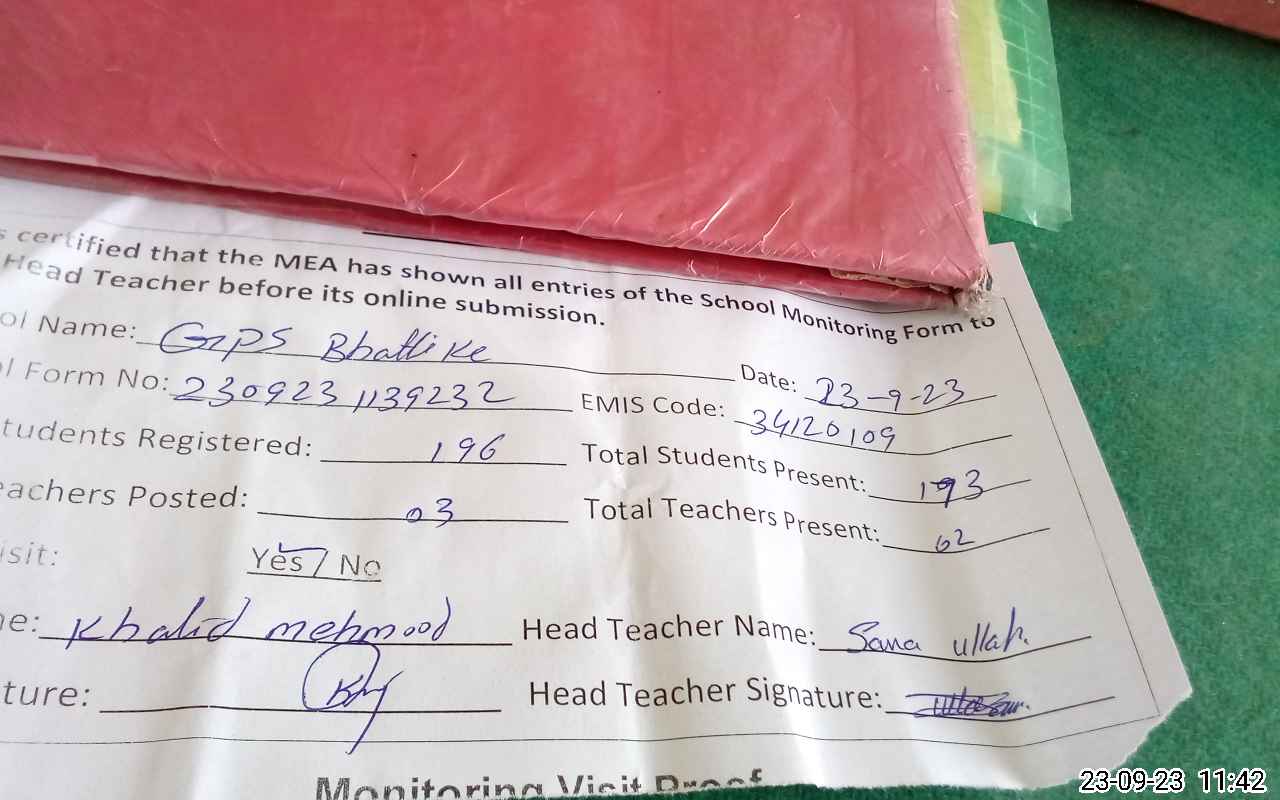 s certified that the MEA has shown all entries of the School Monitoring Form to
Head Teacher before its online submission.
ol Name: GPS Bhattike Date: 23-9-23
l Form No: 230923 1139232 EMIS Code: 34120109
tudents Registered: 196 Total Students Present: 193
eachers Posted: 03 Total Teachers Present: 02
isit: Yes / No
ne: Khalid mehmood Head Teacher Name: Sana ullah.
ture: Head Teacher Signature:
Monitoring Visit Proof
23-09-23 11:42